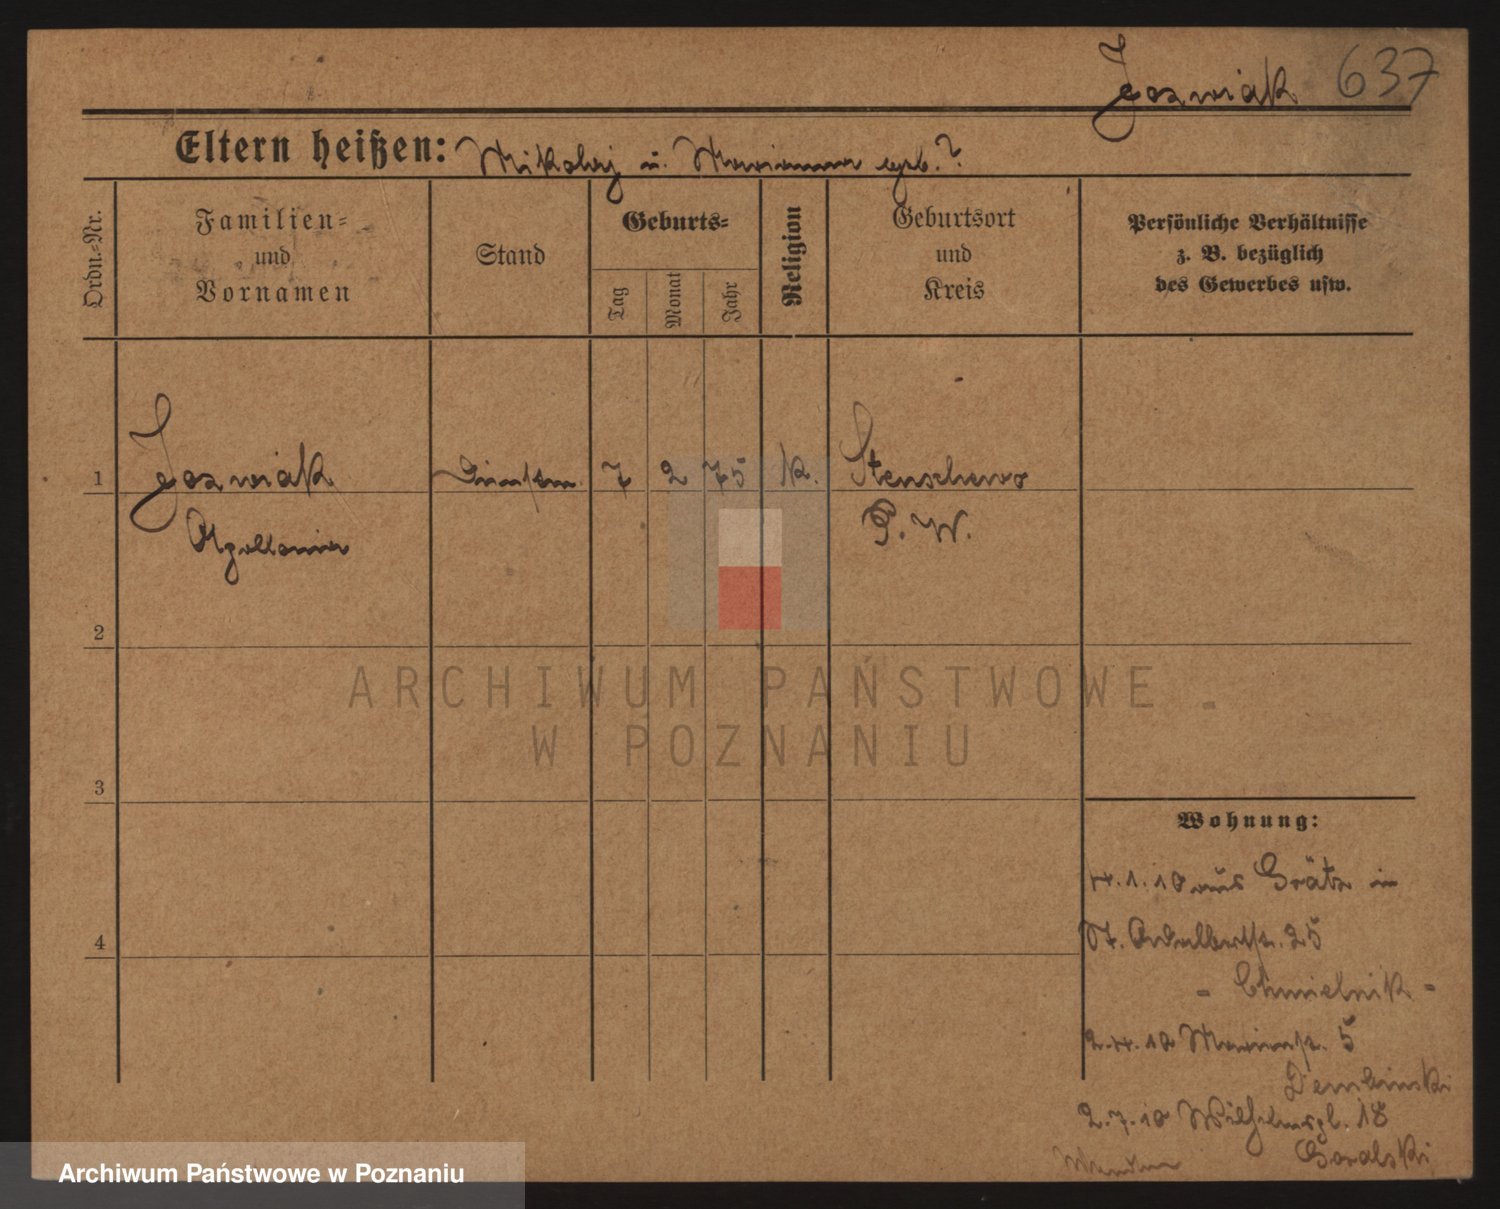 Jozwiak 637
Eltern heißen: Mikolaj u. Marianna geb. ?
Ordn.-Nr.
Familien-
und
Vornamen
Stand
Geburts-
Tag
Monat
Jahr
Religion
Geburtsort
und
Kreis
Persönliche Verhältnisse
z. B. bezüglich
des Gewerbes usw.
1 Jozwiak 7 2 75 K. Stenschewo
Apollonia P. W.
2
ARCHIWUM PAŃSTWOWE
W POZNANIU
3
Wohnung:
4.1.10 aus Grätz in
St. Adalbertstr. 25
4
- Chmielnik -
2.4.10 Marienstr. 5
Dembinski
2.7.10 Wilhelmspl. 18
Goralski
Archiwum Państwowe w Poznaniu